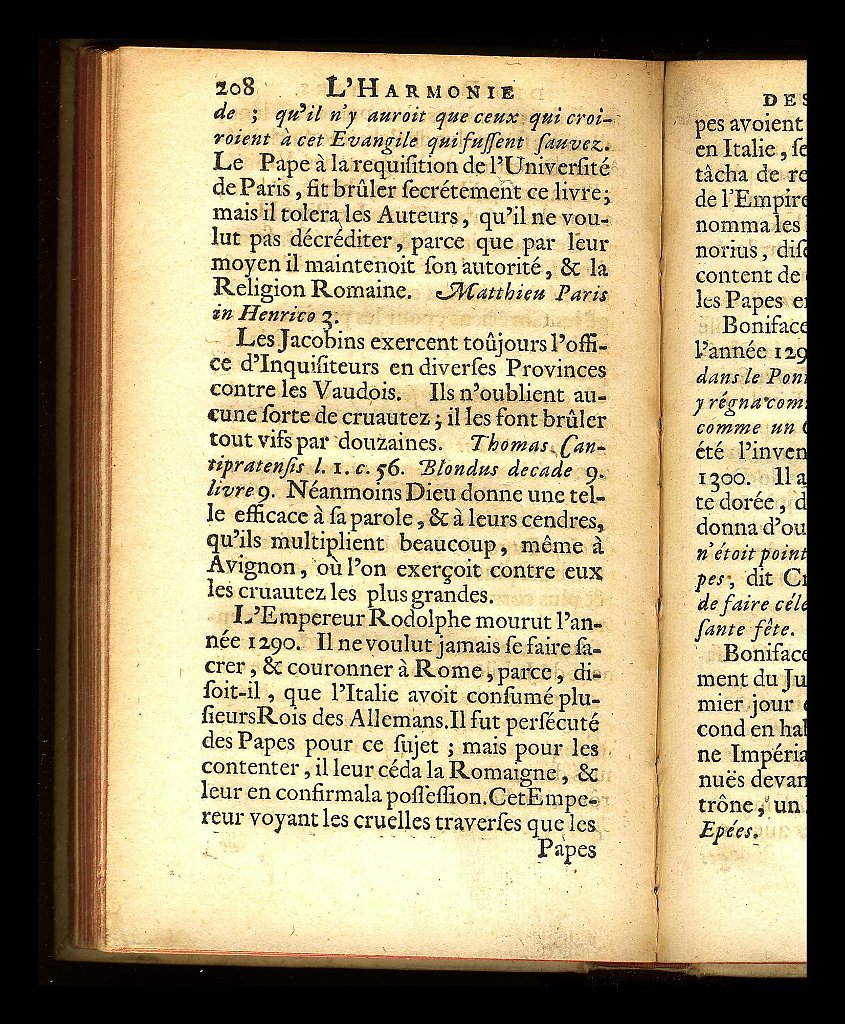 208 L'HARMONIE
de ; qu'il n'y auroit que ceux qui croi-
roient à cet Evangile qui fuſſent ſauvez.
Le Pape à la requiſition de l'Univerſité
de Paris, fit brûler ſecrétement ce livre;
mais il tolera les Auteurs, qu'il ne vou-
lut pas décréditer, parce que par leur
moyen il maintenoit ſon autorité, & la
Religion Romaine. Matthieu Paris
in Henrico 3.
Les Jacobins exercent toûjours l'offi-
ce d'Inquiſiteurs en diverſes Provinces
contre les Vaudois. Ils n'oublient au-
cune ſorte de cruautez; il les font brûler
tout vifs par douzaines. Thomas Can-
tipratenſis l. 1. c. 56. Blondus decade 9.
livre 9. Néanmoins Dieu donne une tel-
le efficace à ſa parole, & à leurs cendres,
qu'ils multiplient beaucoup, même à
Avignon, où l'on exerçoit contre eux
les cruautez les plus grandes.
L'Empereur Rodolphe mourut l'an-
née 1290. Il ne voulut jamais ſe faire ſa-
crer, & couronner à Rome, parce, di-
ſoit-il, que l'Italie avoit conſumé plu-
ſieurs Rois des Allemans. Il fut perſécuté
des Papes pour ce ſujet ; mais pour les
contenter, il leur céda la Romaigne, &
leur en confirma la poſſeſſion. Cet Empe-
reur voyant les cruelles traverſes que les
Papes
DES
pes avoient
en Italie, ſe
tâcha de re
de l'Empire
nomma les
norius, diſ
content de
les Papes e
Boniface
l'année 129
dans le Pon
y régna com
comme un
été l'inven
1300. Il a
te dorée, d
donna d'ou
n'étoit point
pes, dit C
de faire céle
ſante fête.
Boniface
ment du Ju
mier jour
cond en ha
ne Impéria
nuës devan
trône, un
Epées.